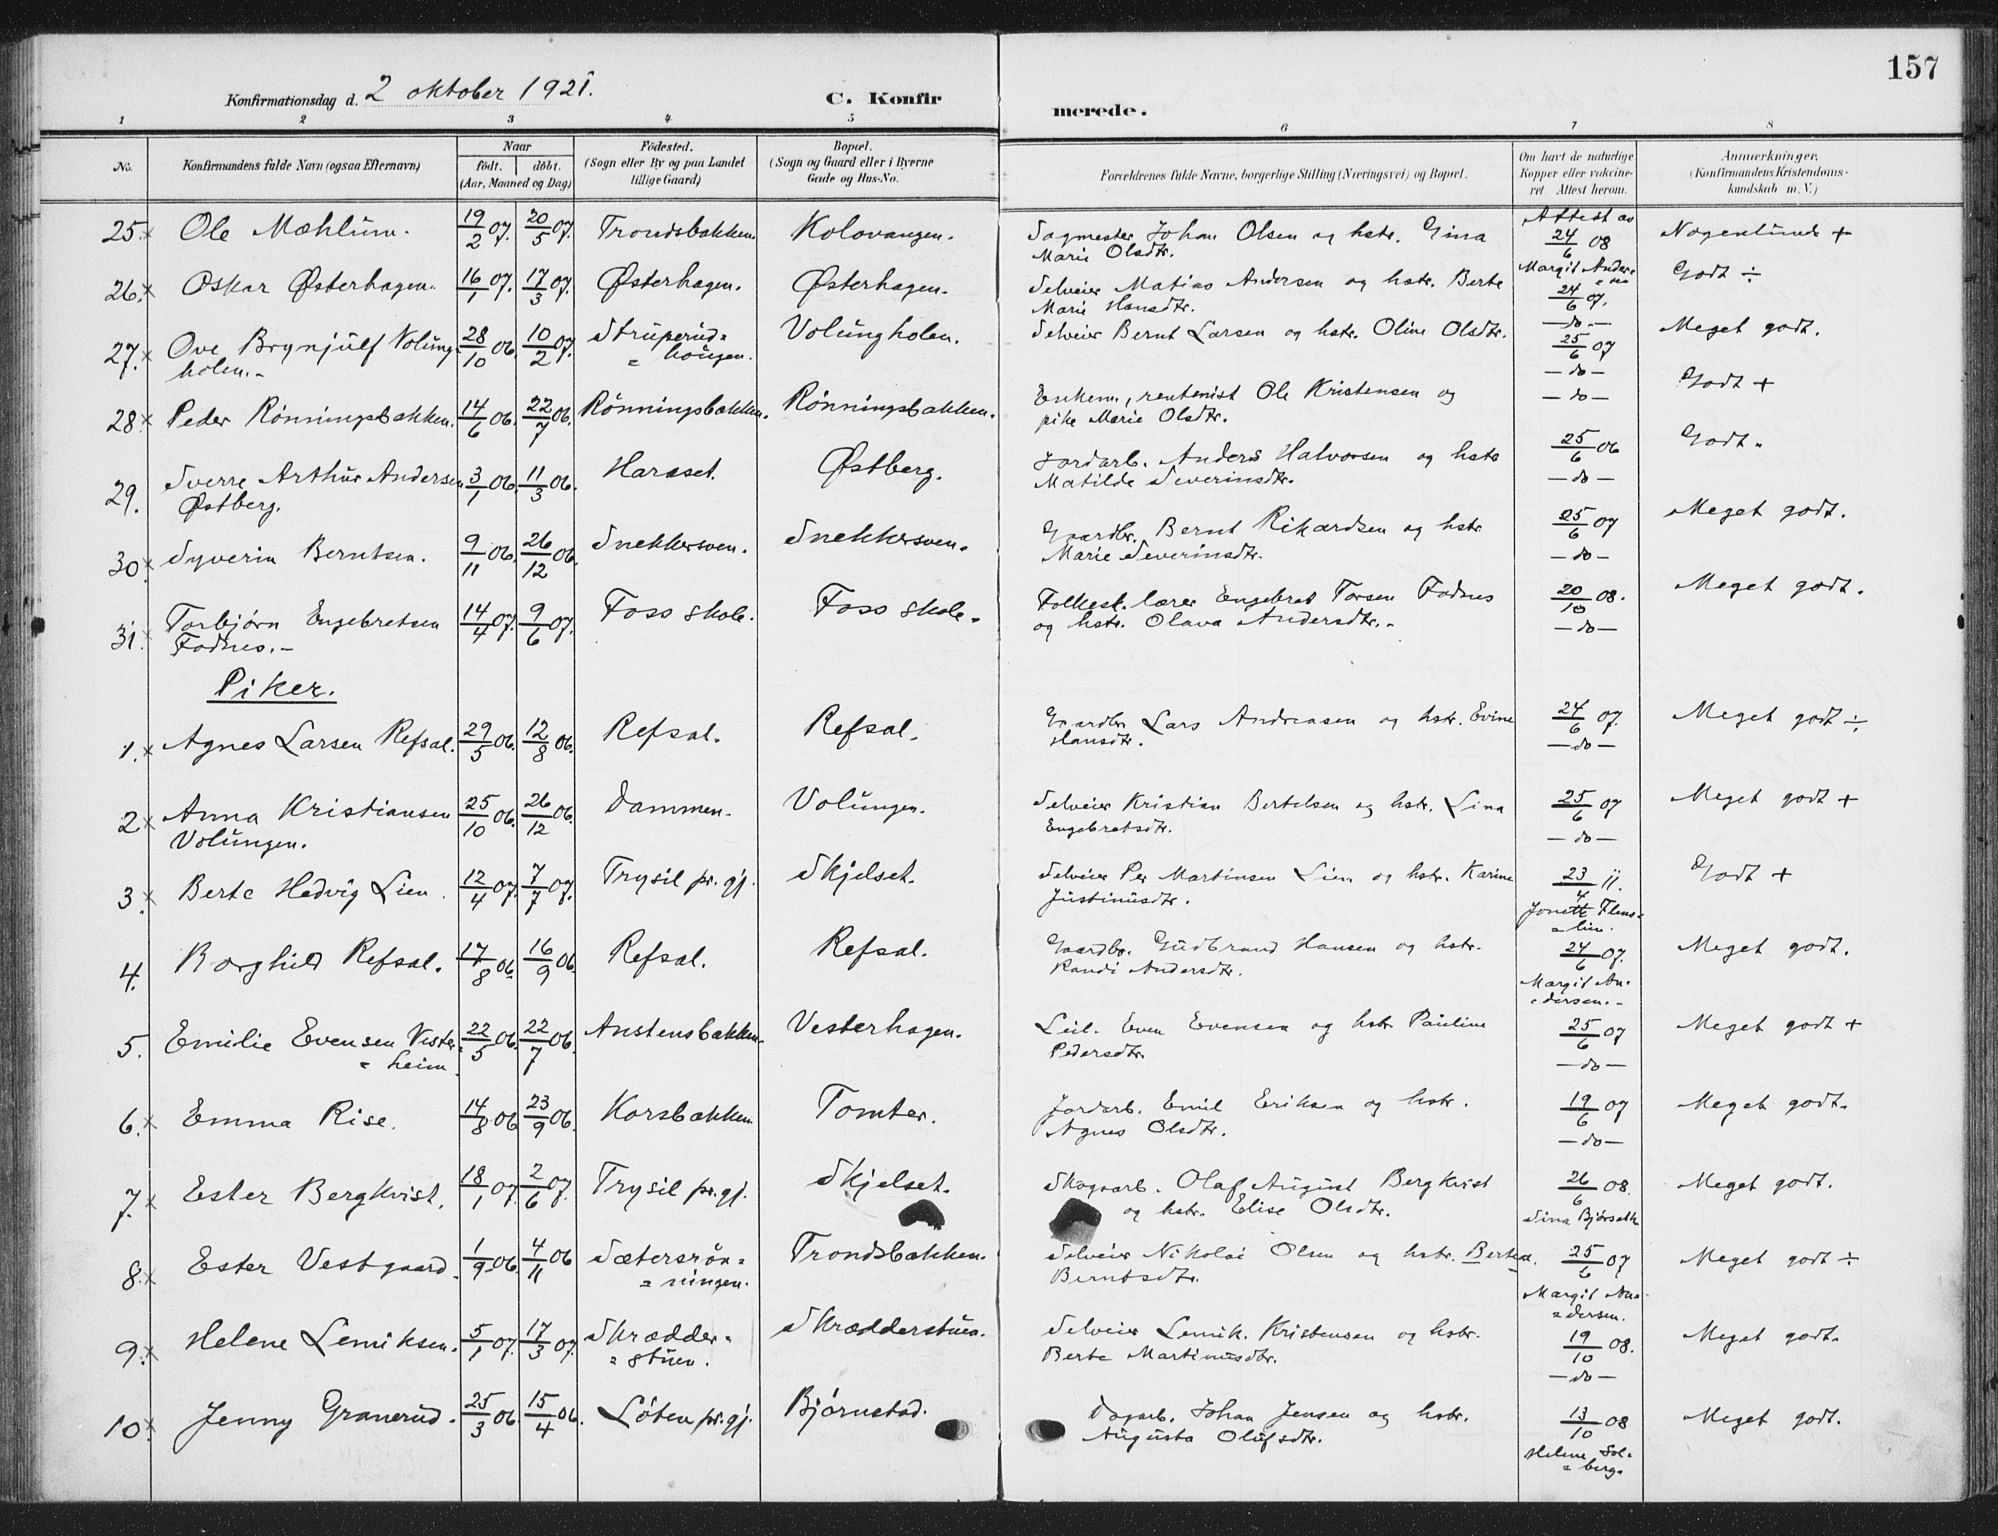 157
Konfirmationsdag d. 2 oktober 1921.
C. Konfirmerede.
1 2 3 4 5 6 7 8
No.
Konfirmandens fulde Navn (ogsaa Efternavn)
Naar
født. døbt.
(Aar, Maaned og Dag)
Fødested.
(Sogn eller By og paa Landet
tillige Gaard)
Bopæl.
(Sogn og Gaard eller i Byerne
Gade og Hus-No.
Forældrenes fulde Navne, borgerlige Stilling (Næringsvei) og Bopæl.
Om havt de naturlige
Kopper eller vakcine-
ret Attest herom.
Anmærkninger.
(Konfirmandens Kristendoms-
kundskab m. V.)
25. x Ole Mæhlum. 19/2 07. 20/5 07. Trondsbakken. Kolovangen. Sagmester Johan Olsen og hstr. Gina Attest av 24/6 08 Nogenlunde +
Marie Olsdtr. Margit Ander-
26. x Oskar Østerhagen. 16/1 07. 17/3 07. Østerhagen. Østerhagen. Selveier Matias Andersen og hstr. Berte 24/6 07. Godt ÷
Marie Hansdtr. — do —
27. x Ove Brynjulf Volung- 28/10 06. 10/2 07. Struperud- Volungholen. Selveier Bernt Larsen og hstr. Oline Olsdtr. 25/6 07 Meget godt.
holen. - " hougen. — do —
28. x Peder Rønningsbakken. 14/6 06. 22/7 06. Rønningsbakken. Rønningsbakken. Enkem., rentenist Ole Kristensen og — do — Godt +
pike Marie Olsdtr.
29. Sverre Arthur Andersen 3/1 06. 11/3 06. Haraset. Østberg. Jordarb. Anders Halvorsen og hstr 25/6 06 Godt.
Østberg. Matilde Severinsdtr. — do —
30. Syverin Berntsen. 9/11 06. 26/12 06. Snekkersven. Snekkersven. Gaardbr. Bernt Rikardsen og hstr 25/6 07 Meget godt.
Marie Severinsdtr. — do —
31. Torbjørn Engebretsen 14/4 07. 9/6 07. Foss skole. Foss skole. Folkesk. lærer Engebret Torsen Fodnes 20/10 08. Meget godt.
Fodnes. - og hstr. Olava Andersdtr. - — do —
Piker.
1. x Agnes Larsen Refsal. 29/5 06. 12/8 06. Refsal. Refsal. Gaardbr Lars Andreasen og hstr. Evine 24/6 07. Meget godt ÷
Hansdtr. — do —
2 x Anna Kristiansen 25/10 06. 26/12 06. Dammen. Volungen. Selveier Kristian Bertelsen og hstr. Lina 25/6 07 Meget godt +
Volungen. Engebretsdtr. — do —
3. x Berte Hedvig Lien. 12/4 07. 7/7 07. Trysil pr. gj. Skjelset. Selveier Per Martinsen Lien og hstr. Karine 23/4 11. Godt +
Justinusdtr.
4. Borghild Refsal. 17/8 06. 16/9 06. Refsal. Refsal. Gaardbr. Gudbrand Hansen og hstr. 24/6 07. Meget godt.
Randi Andersdtr. Margit An-
dersen. -
5. Emilie Evensen Vester- 22/5 06. 22/7 06. Anstensbakken. Vesterhagen. Leil. Even Evensen og hstr Pauline 25/6 07 Meget godt +
" heim. Pedersdtr. — do —
6. x Emma Rise. 14/8 06 23/9 06. Korsbakken Tomter. Jordarb. Emil Eriksen og hstr. 19/6 07 Meget godt.
Agnes Olsdtr. — do —
7. x Ester Bergkvist. 18/1 07. 2/6 07. Trysil pr. gj. Skjelset. Skogsarb. Olaf August Bergkvist 26/6 08. Meget godt.
og hstr. Elise Olsdtr. Sina Bjørseth
8. x Ester Vestgaard. 1/9 06. 4/11 06 Sætersrøn- Trondsbakken. Selveier Nikolai Olsen og hstr. Bertea. 25/6 07 Meget godt ÷
" ningen. Berntsdtr. Margit An-
" dersen.
9. x Helene Lemiksen. 5/1 07. 17/3 07. Skrædder- Skrædderstuen. Selveier Lemik. Kristensen og hstr. 19/10 08. Meget godt.
" stuen. Berte Martinusdtr. — do —
10. x Jenny Granerud. 25/3 06. 15/4 06. Løten pr. gj. Bjørnstad. Dagarb. Johan Jensen og hstr. 13/10 08 Meget godt.
Augusta Olufsdtr. Helene Sol-
" berg.